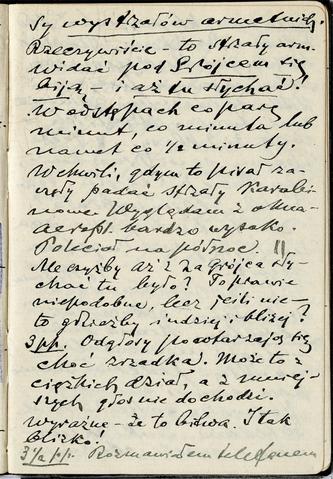 sy wystrzałów armatnich.
Rzeczywiście - to strzały arm.
widać pod Grójcem się
biją - i aż tu słychać!
W odstępach co parę
minut, co minuta lub
nawet co ½ minuty.
W chwili, gdym to pisał za-
częły padać strzały karabi-
nowe. Wyglądam z okna -
aeropl. bardzo wysoko.
Poleciał na północ. !!
Mieliżby aż z za Grójca sły-
chać tu było? To prawie
niepodobne, lecz jeśli nie -
to gdzieżby indziej i bliżej?
3 pp. Odgłosy powtarzają się
choć zrzadka. Może to z
ciężkich dział, a z mniej-
szych głos nie dochodzi.
Wyraźne - że to bitwa. I tak
blizko!
3½ pp. Rozmawiałem telefonem